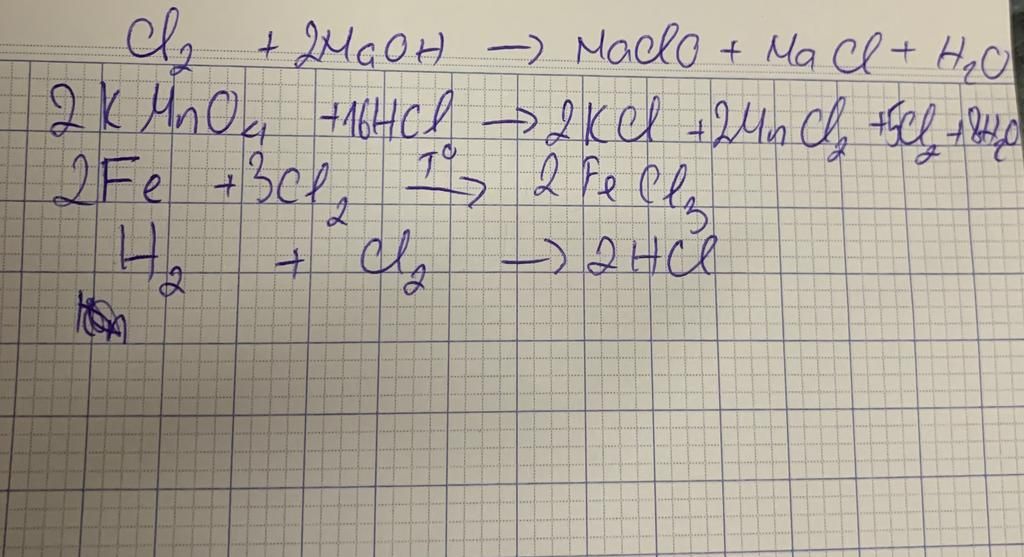 Cl₂ + 2NaOH → NaClO + NaCl + H₂O
2KMnO₄ + 16HCl → 2KCl + 2MnCl₂ + 5Cl₂ + 8H₂O
2Fe + 3Cl₂ T⁰→ 2FeCl₃
H₂ + Cl₂ → 2HCl